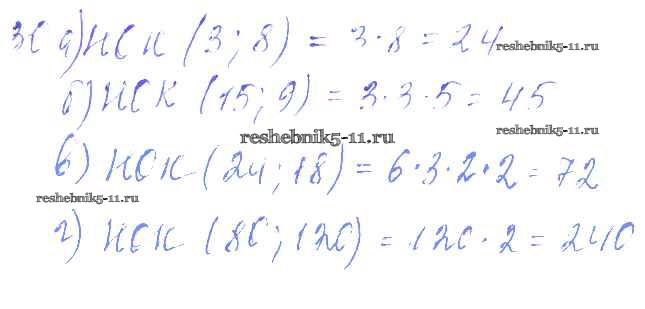 30 а) НОК (3; 8) = 3·8 = 24
reshebnik5-11.ru
б) НОК (15; 9) = 3·3·5 = 45
reshebnik5-11.ru
reshebnik5-11.ru
в) НОК (24; 18) = 6·3·2·2 = 72
reshebnik5-11.ru
г) НОК (80; 120) = 120·2 = 240